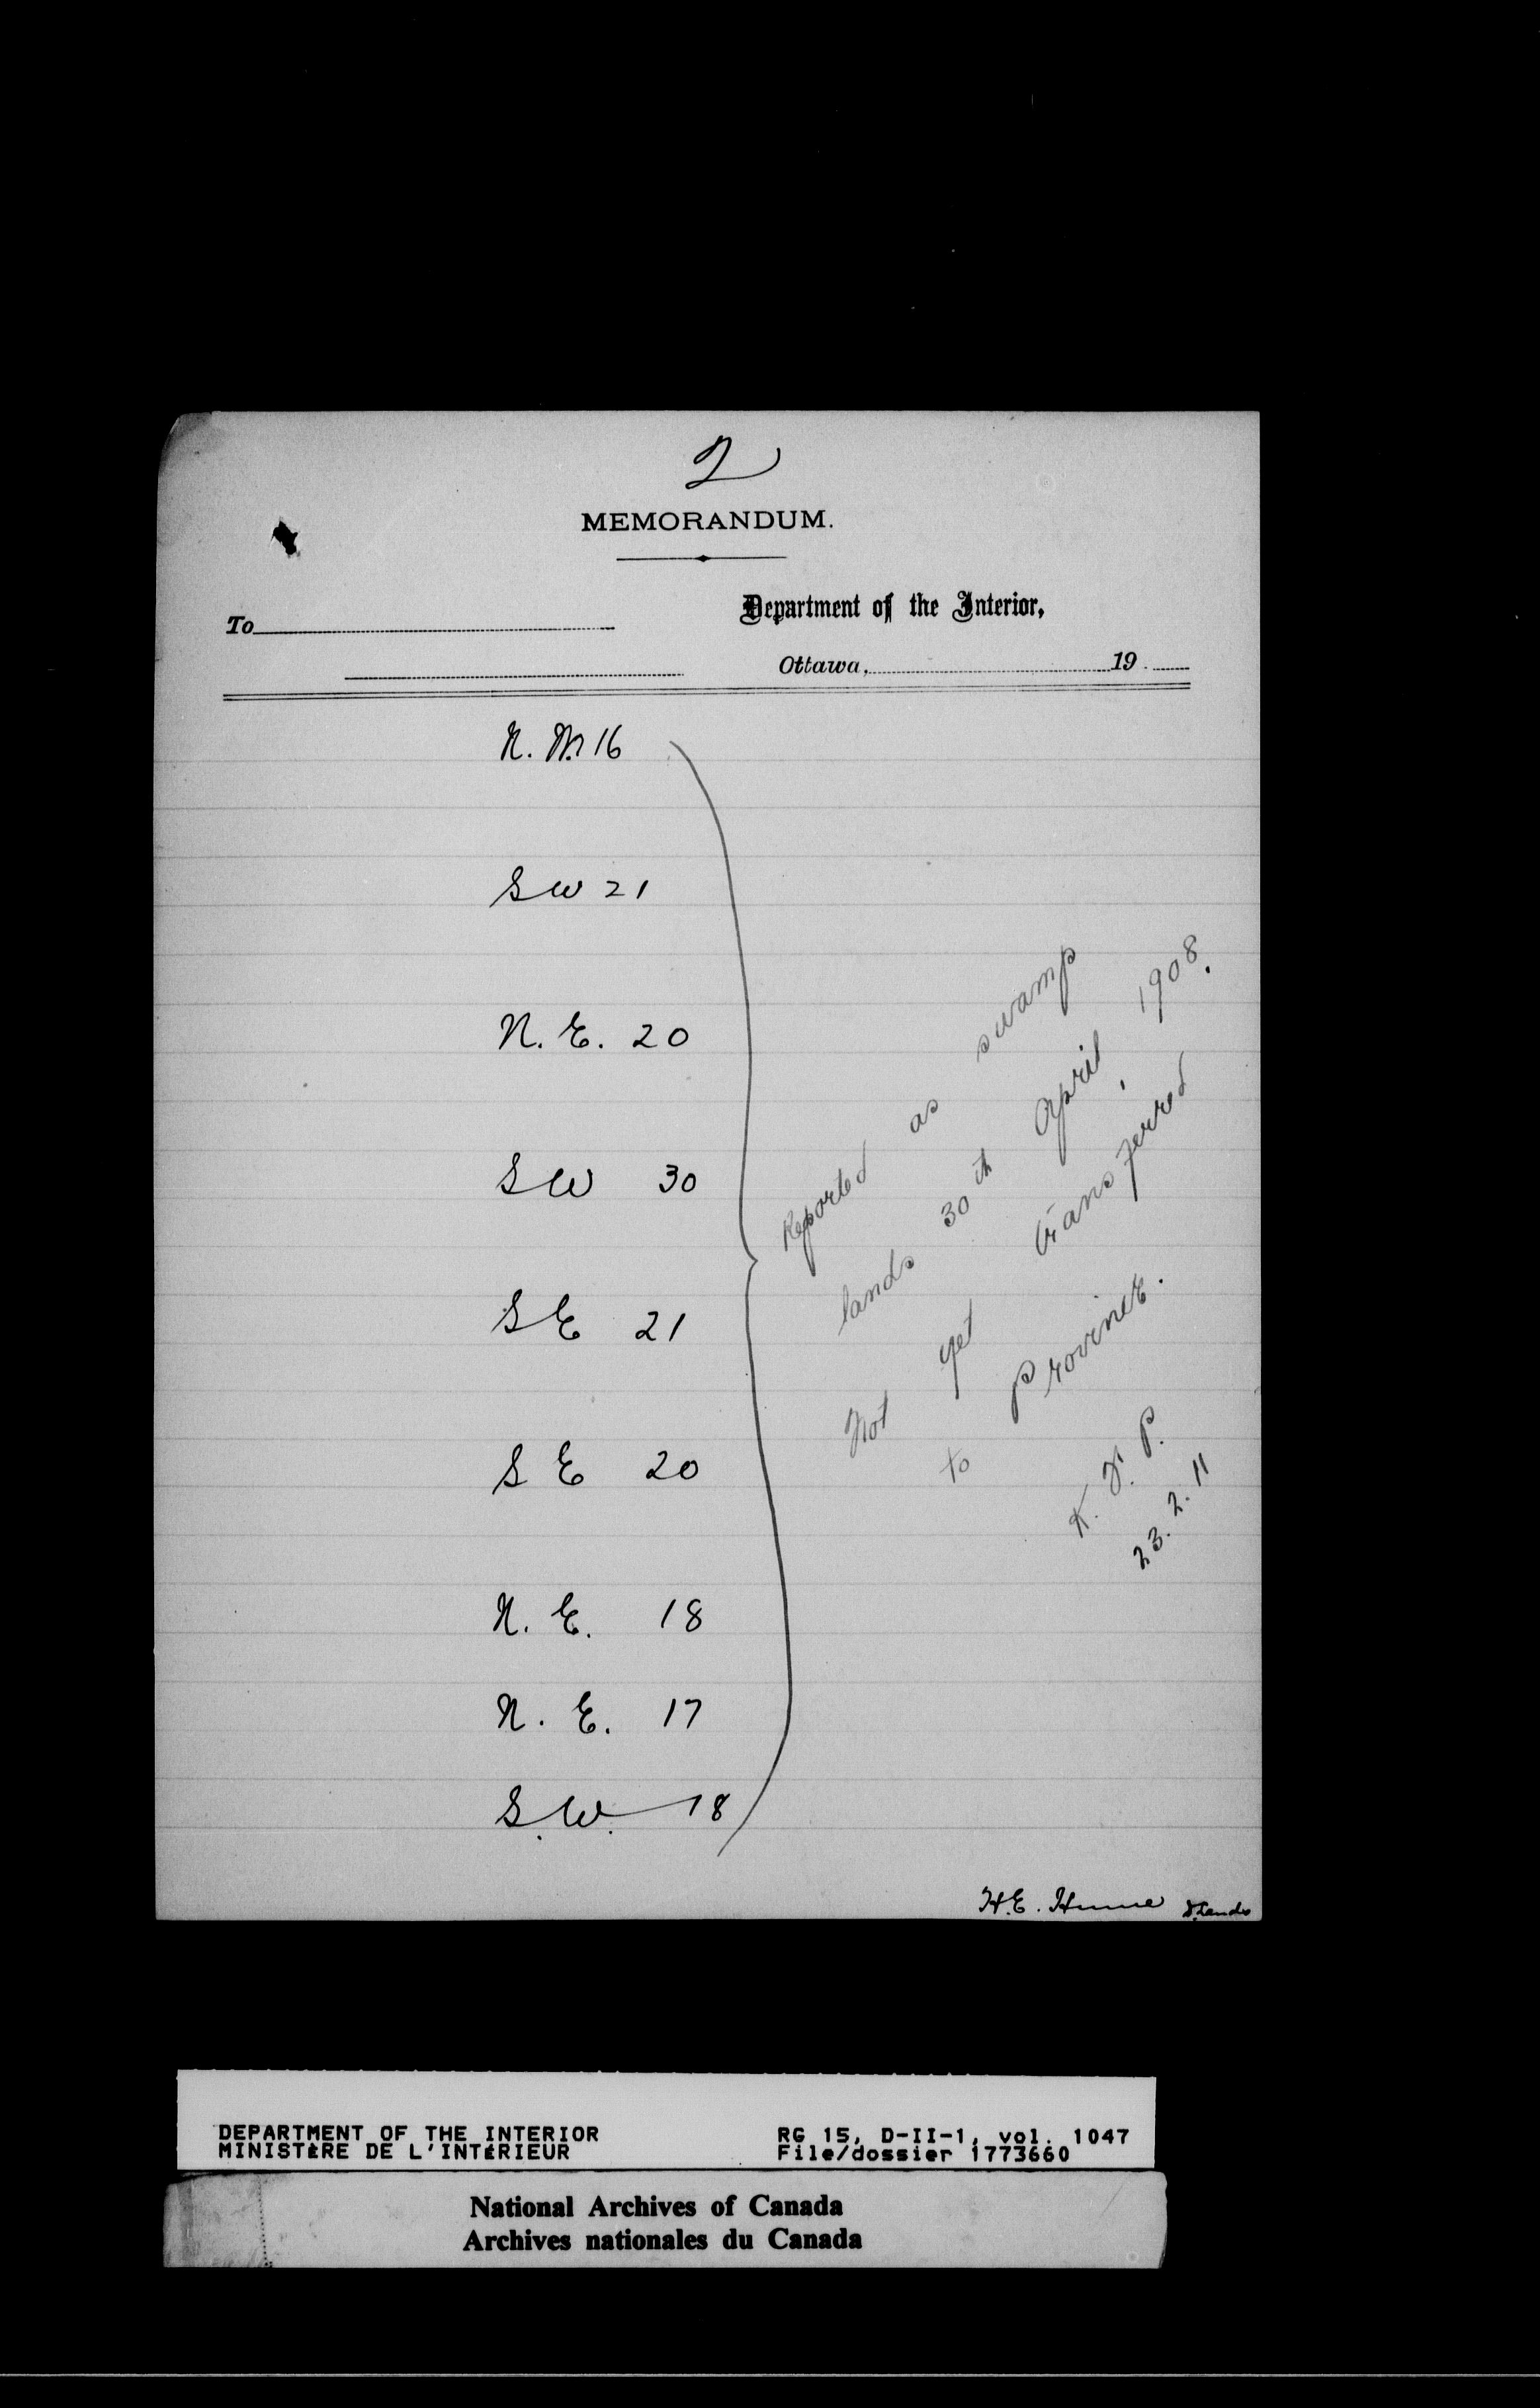 2
MEMORANDUM.
Department of the Interior,
To
Ottawa, 19
N. W. 16
SW 21
N. E. 20
SW 30
SE 21
SE 20
N. E. 18
N. E. 17
S. W. 18
Reported as swamp
lands 30th April, 1908.
Not yet transferred
to Province.
K. F. P.
23. 2. 11
H. E. Hume D. Lands
DEPARTMENT OF THE INTERIOR
MINISTÈRE DE L'INTÉRIEUR
RG 15, D-II-1, vol. 1047
File/dossier 1773660
National Archives of Canada
Archives nationales du Canada